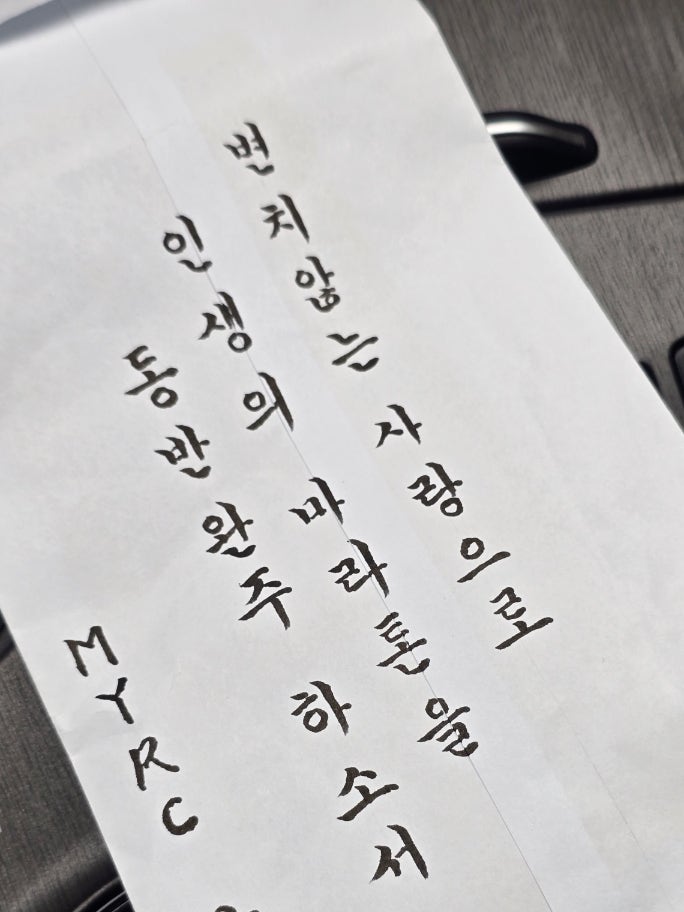 변치않는 사랑으로
인생의 마라톤을
동반완주 하소서
MYRC